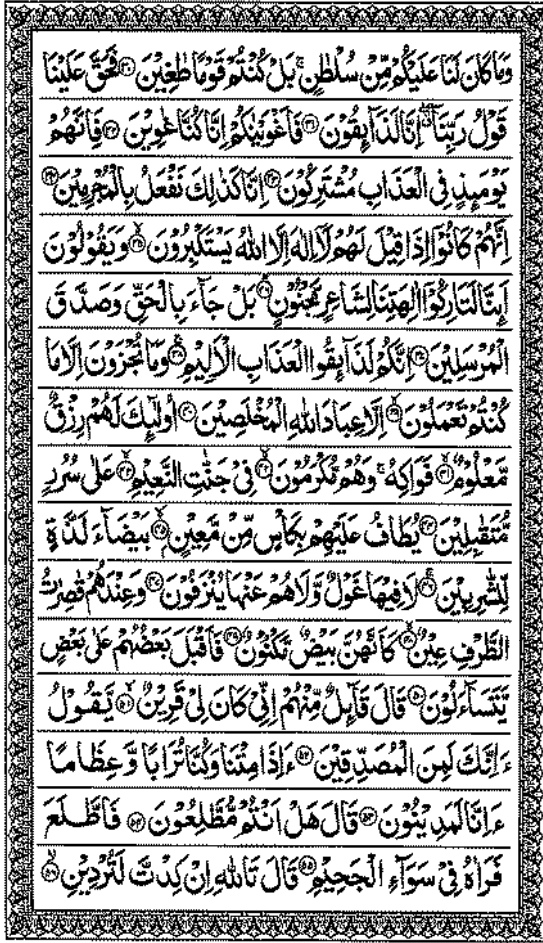 وَمَا كَانَ لَنَا عَلَيْكُمْ مِّنْ سُلْطٰنٍ ۚ بَلْ كُنْتُمْ قَوْمًا طٰغِيْنَ ۝۳۰ فَحَقَّ عَلَيْنَا
قَوْلُ رَبِّنَاۤ ۖ اِنَّا لَذَآىِٕقُوْنَ ۝۳۱ فَاَغْوَيْنٰكُمْ اِنَّا كُنَّا غٰوِيْنَ ۝۳۲ فَاِنَّهُمْ
يَوْمَىِٕذٍ فِى الْعَذَابِ مُشْتَرِكُوْنَ ۝۳۳ اِنَّا كَذٰلِكَ نَفْعَلُ بِالْمُجْرِمِيْنَ ۝۳۴
اِنَّهُمْ كَانُوْۤا اِذَا قِيْلَ لَهُمْ لَاۤ اِلٰهَ اِلَّا اللّٰهُ يَسْتَكْبِرُوْنَ ۝۳۵ وَيَقُوْلُوْنَ
اَىِٕنَّا لَتَارِكُوْۤا اٰلِهَتِنَا لِشَاعِرٍ مَّجْنُوْنٍ ۝۳۶ بَلْ جَآءَ بِالْحَقِّ وَصَدَّقَ
الْمُرْسَلِيْنَ ۝۳۷ اِنَّكُمْ لَذَآىِٕقُوا الْعَذَابِ الْاَلِيْمِ ۝۳۸ وَمَا تُجْزَوْنَ اِلَّا مَا
كُنْتُمْ تَعْمَلُوْنَ ۝۳۹ اِلَّا عِبَادَ اللّٰهِ الْمُخْلَصِيْنَ ۝۴۰ اُولٰٓىِٕكَ لَهُمْ رِزْقٌ
مَّعْلُوْمٌ ۝۴۱ فَوَاكِهُ ۚ وَهُمْ مُّكْرَمُوْنَ ۝۴۲ فِيْ جَنّٰتِ النَّعِيْمِ ۝۴۳ عَلٰى سُرُرٍ
مُّتَقٰبِلِيْنَ ۝۴۴ يُطَافُ عَلَيْهِمْ بِكَاْسٍ مِّنْ مَّعِيْنٍ ۝۴۵ بَيْضَآءَ لَذَّةٍ
لِّلشّٰرِبِيْنَ ۝۴۶ لَا فِيْهَا غَوْلٌ وَّلَا هُمْ عَنْهَا يُنْزَفُوْنَ ۝۴۷ وَعِنْدَهُمْ قٰصِرٰتُ
الطَّرْفِ عِيْنٌ ۝۴۸ كَاَنَّهُنَّ بَيْضٌ مَّكْنُوْنٌ ۝۴۹ فَاَقْبَلَ بَعْضُهُمْ عَلٰى بَعْضٍ
يَّتَسَآءَلُوْنَ ۝۵۰ قَالَ قَآىِٕلٌ مِّنْهُمْ اِنِّيْ كَانَ لِيْ قَرِيْنٌ ۝۵۱ يَّقُوْلُ
ءَاِنَّكَ لَمِنَ الْمُصَدِّقِيْنَ ۝۵۲ ءَاِذَا مِتْنَا وَكُنَّا تُرَابًا وَّعِظَامًا
ءَاِنَّا لَمَدِيْنُوْنَ ۝۵۳ قَالَ هَلْ اَنْتُمْ مُّطَّلِعُوْنَ ۝۵۴ فَاطَّلَعَ
فَرَاٰهُ فِيْ سَوَآءِ الْجَحِيْمِ ۝۵۵ قَالَ تَاللّٰهِ اِنْ كِدْتَّ لَتُرْدِيْنِ ۝۵۶